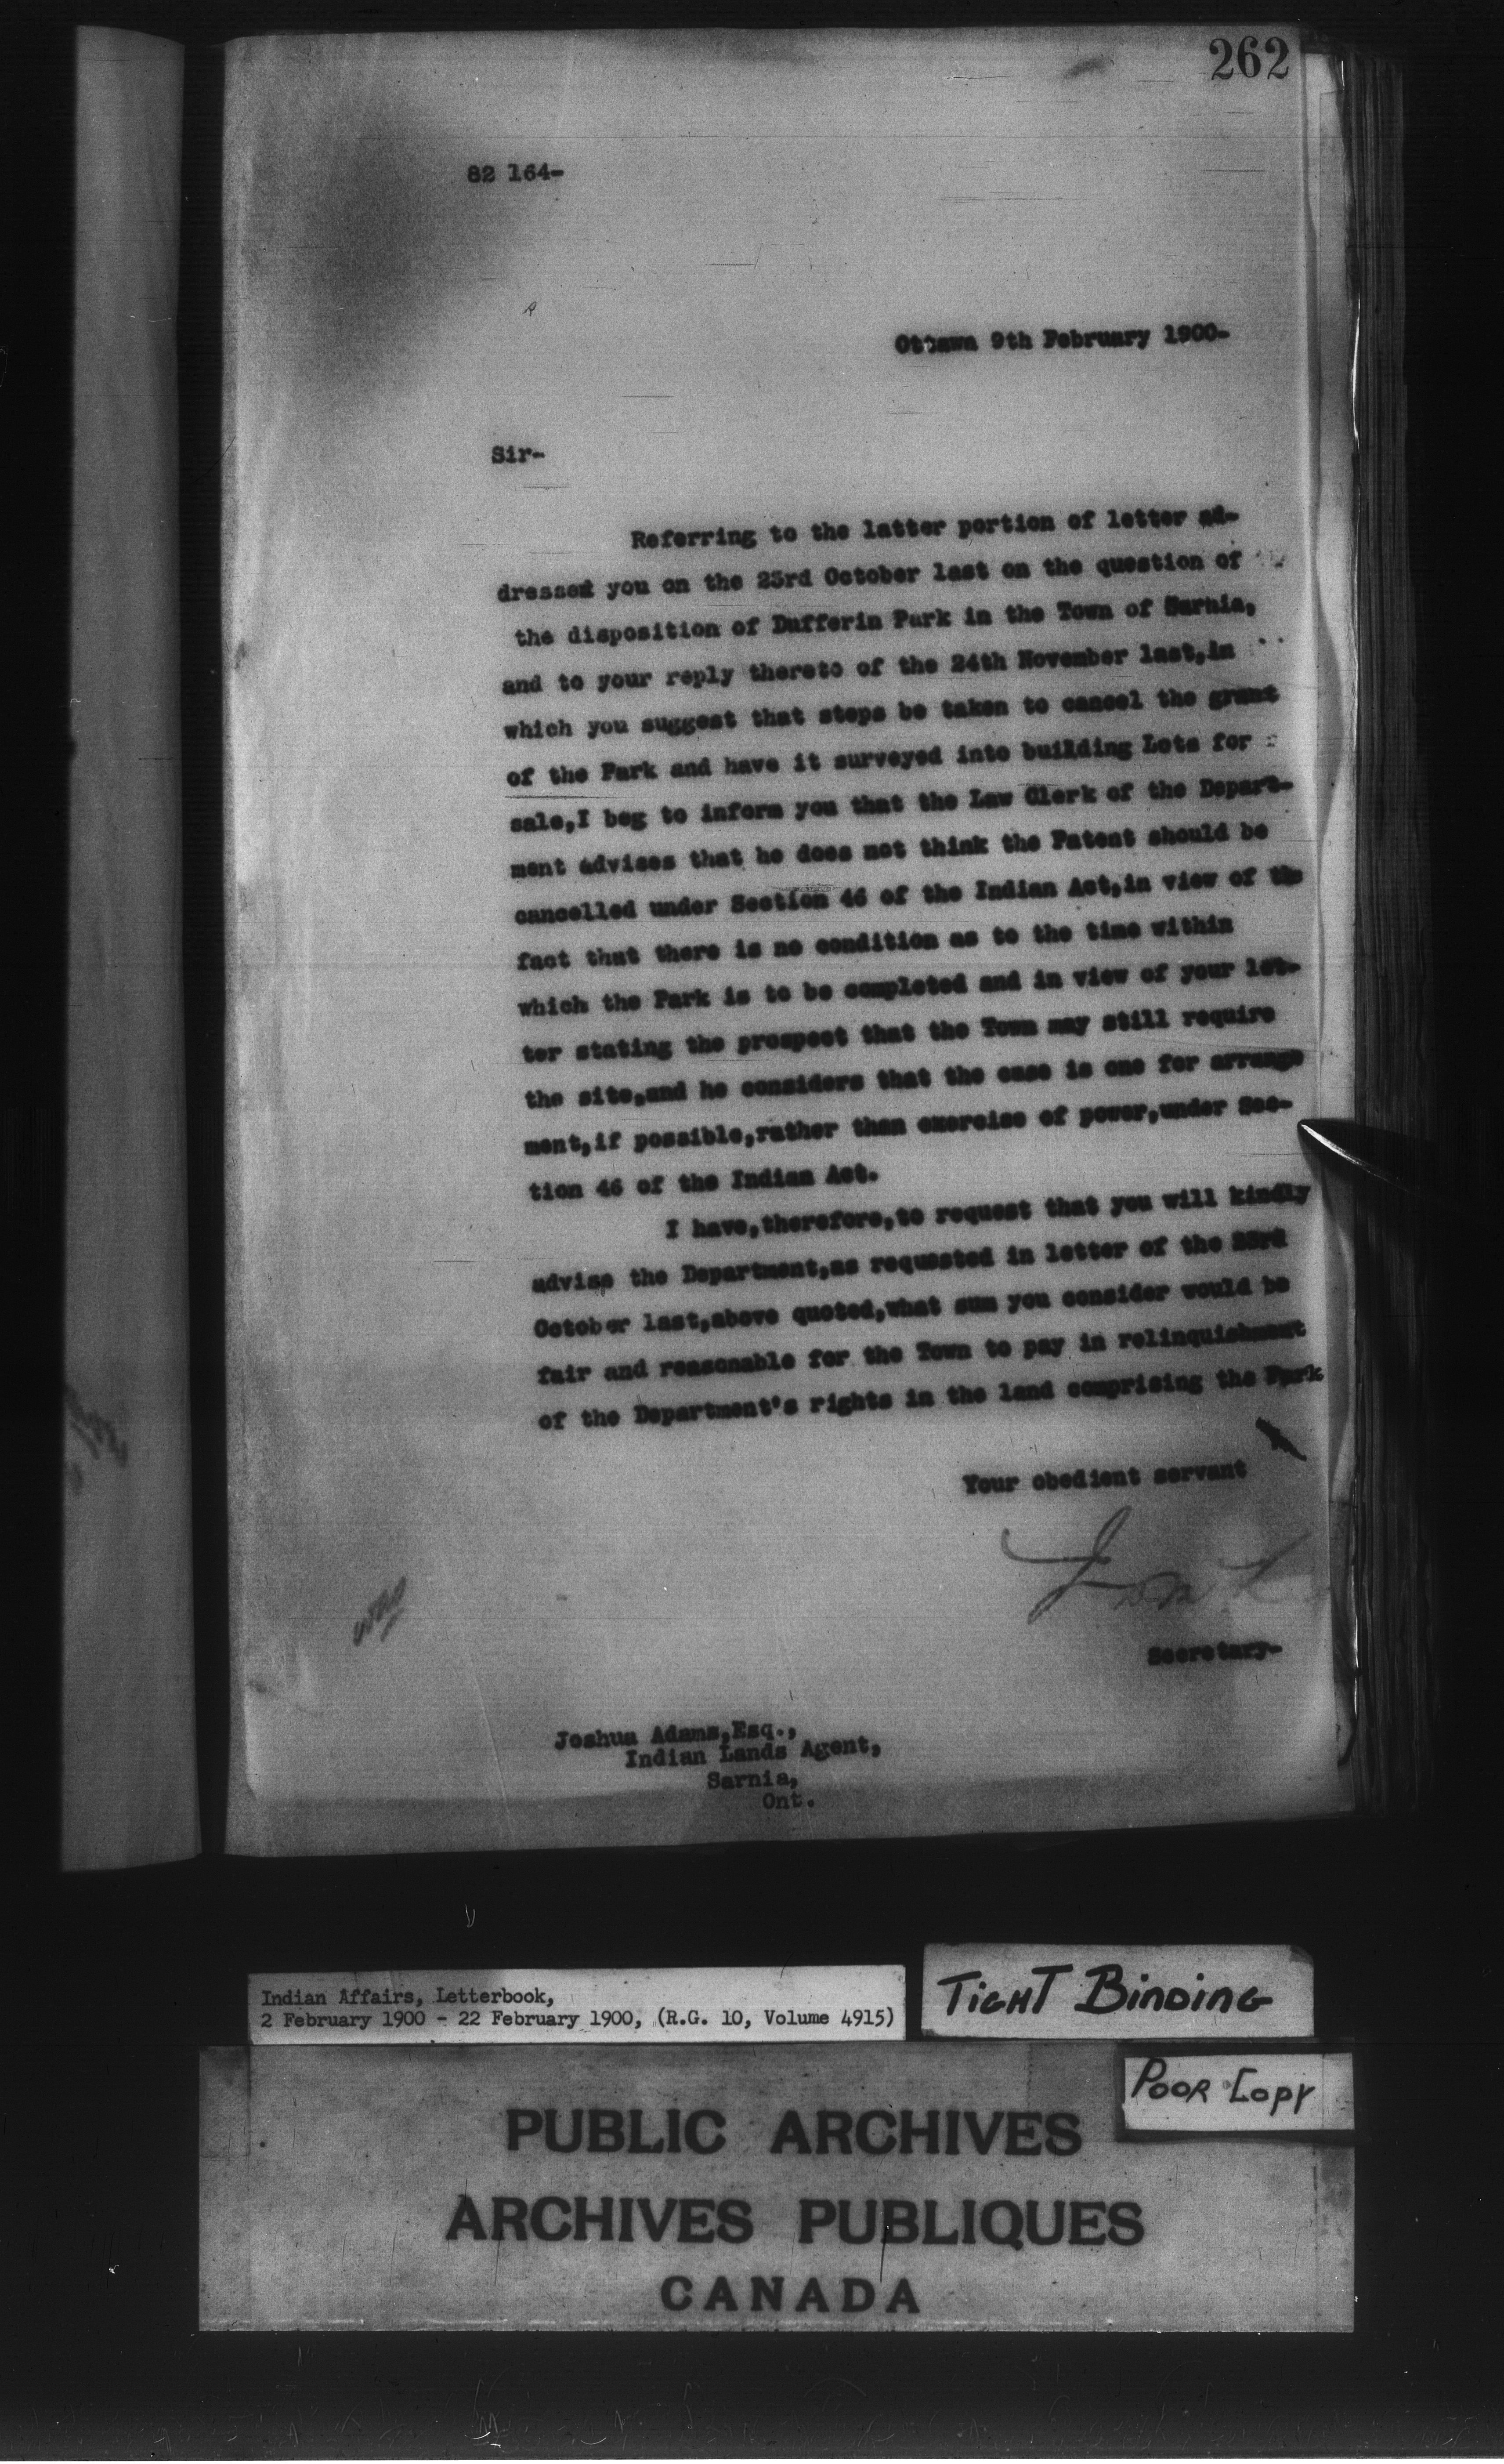 262
82 164-
Ottawa 9th February 1900-
Sir-
Referring to the latter portion of letter ad-
dressed you on the 23rd October last on the question of
the disposition of Dufferin Park in the Town of Sarnia,
and to your reply thereto of the 24th November last,in
which you suggest that steps be taken to cancel the grant
of the Park and have it surveyed into building Lots for
sale,I beg to inform you that the Law Clerk of the Depart-
ment advises that he does not think the Patent should be
cancelled under Section 46 of the Indian Act,in view of the
fact that there is no condition as to the time within
which the Park is to be completed and in view of your let-
ter stating the prospect that the Town may still require
the site,and he considers that the case is one for arrange
ment,if possible,rather than exercise of power,under Sec-
tion 46 of the Indian Act.
I have,therefore,to request that you will kindly
advise the Department,as requested in letter of the 23rd
October last,above quoted,what sum you consider would be
fair and reasonable for the Town to pay in relinquishment
of the Department's rights in the land comprising the Park
Your obedient servant
Secretary-
Joshua Adams,Esq.,
Indian Lands Agent,
Sarnia,
Ont.
Indian Affairs, Letterbook,
2 February 1900 - 22 February 1900, (R.G. 10, Volume 4915)
TIGHT BINDING
POOR COPY
PUBLIC ARCHIVES
ARCHIVES PUBLIQUES
CANADA